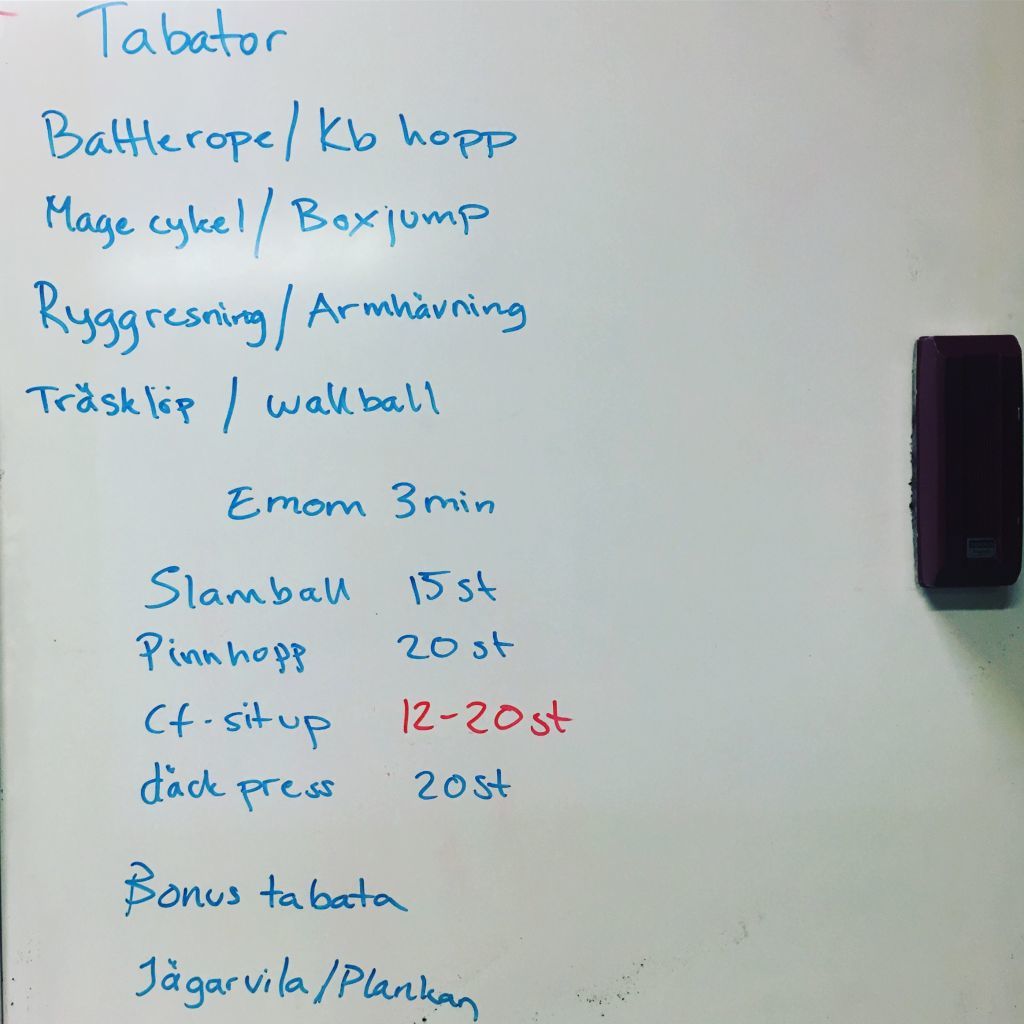 Tabator
Battlerope/Kb hopp
Mage cykel/Boxjump
Ryggresning/Armhävning
Träsklöp / wallball
Emom 3min
Slamball 15st
Pinnhopp 20st
Cf-situp 12-20st
däck press 20st
Bonus tabata
Jägarvila/Plankan